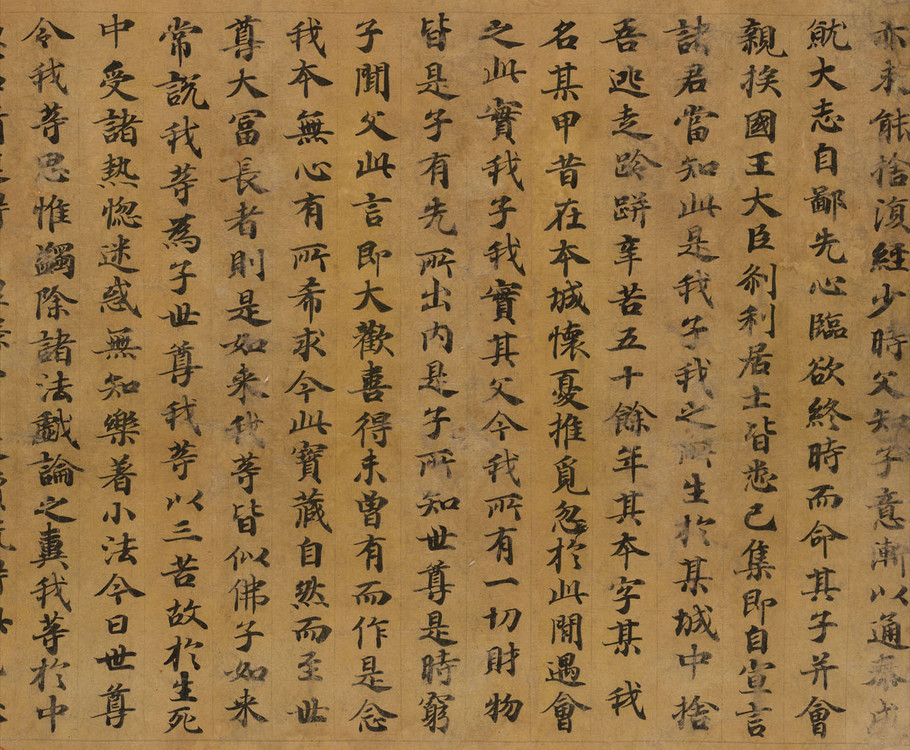 亦未能捨復經少時父知子意漸以通泰成
就大志自鄙先心臨欲終時而命其子并會
親族國王大臣剎利居士皆悉已集即自宣言
諸君當知此是我子我之所生於某城中捨
吾逃走跉跰辛苦五十餘年其本字某我
名某甲昔在本城懷憂推覓忽於此間遇會
之此實我子我實其父今我所有一切財物
皆是子有先所出内是子所知世尊是時窮
子聞父此言即大歡喜得未曾有而作是念
我本無心有所希求今此寶藏自然而至世
尊大富長者則是如来我等皆似佛子如来
常說我等為子世尊我等以三苦故於生死
中受諸熱惱迷惑無知樂著小法今日世尊
令我等思惟蠲除諸法戲論之糞我等於中